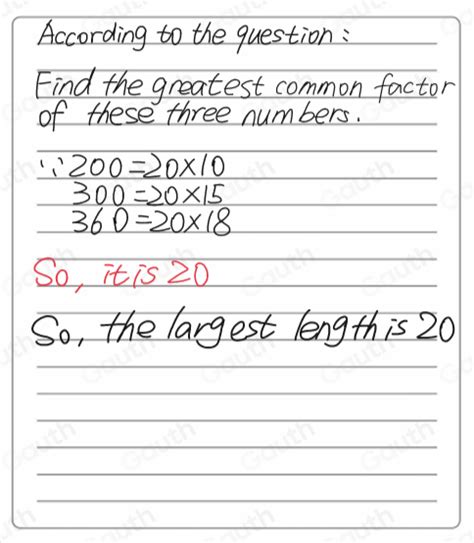 According to the question:
Find the greatest common factor
of these three numbers.
∵200=20×10
300=20×15
360=20×18
So, it is 20
So, the largest length is 20